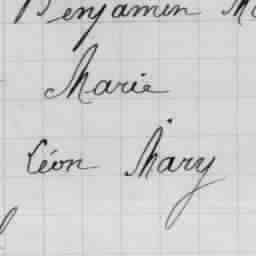 Benjamin
Marie
Léon Mary